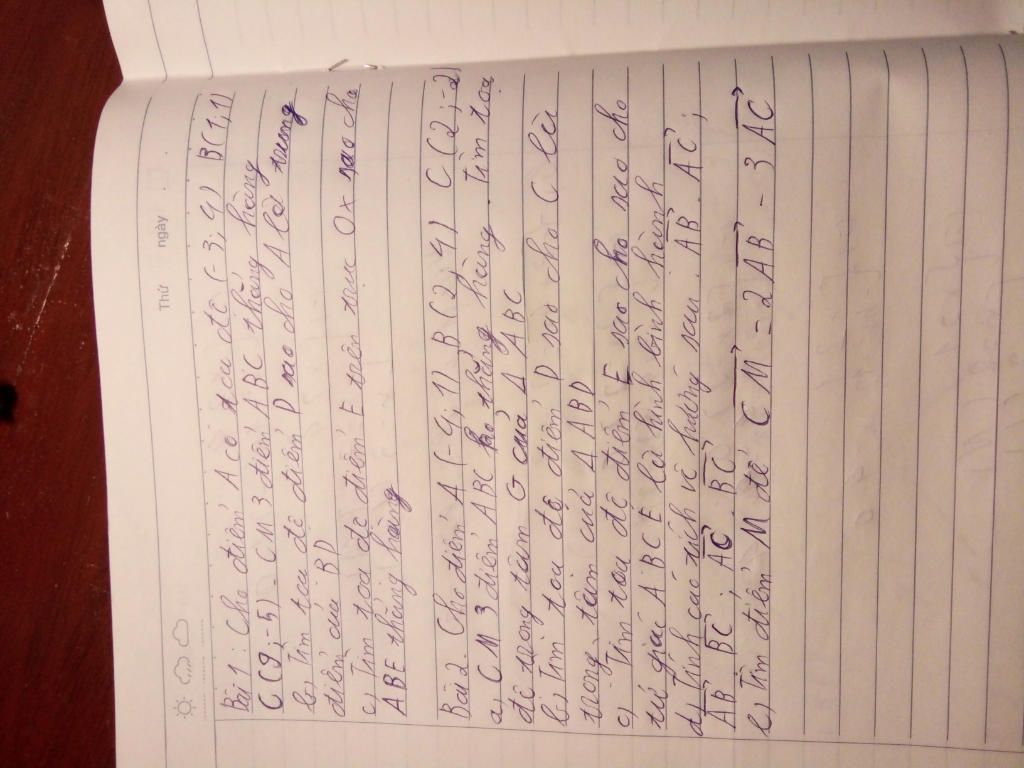 Thứ ngày
Bài 1: Cho điểm A có toạ độ (-3; 4) B(1; 1)
C(9; -5). CM 3 điểm ABC thẳng hàng
b, Tìm toạ độ điểm D sao cho A là trung
điểm của BD
c, Tìm toạ độ điểm E trên trục Ox sao cho
ABE thẳng hàng
Bài 2. Cho điểm A(-4; 1) B(2; 4) C(2; -2)
a, CM 3 điểm ABC ko thẳng hàng. Tìm toạ
độ trọng tâm G của Δ ABC
b, Tìm toạ độ điểm D sao cho C là
trọng tâm của Δ ABD
c, Tìm toạ độ điểm E sao cho sao cho
tứ giác ABCE là hình bình hành
d, Tính các tích vô hướng sau. AB. AC;
AB. BC; AC. BC
e, Tìm điểm M để CM = 2AB - 3AC